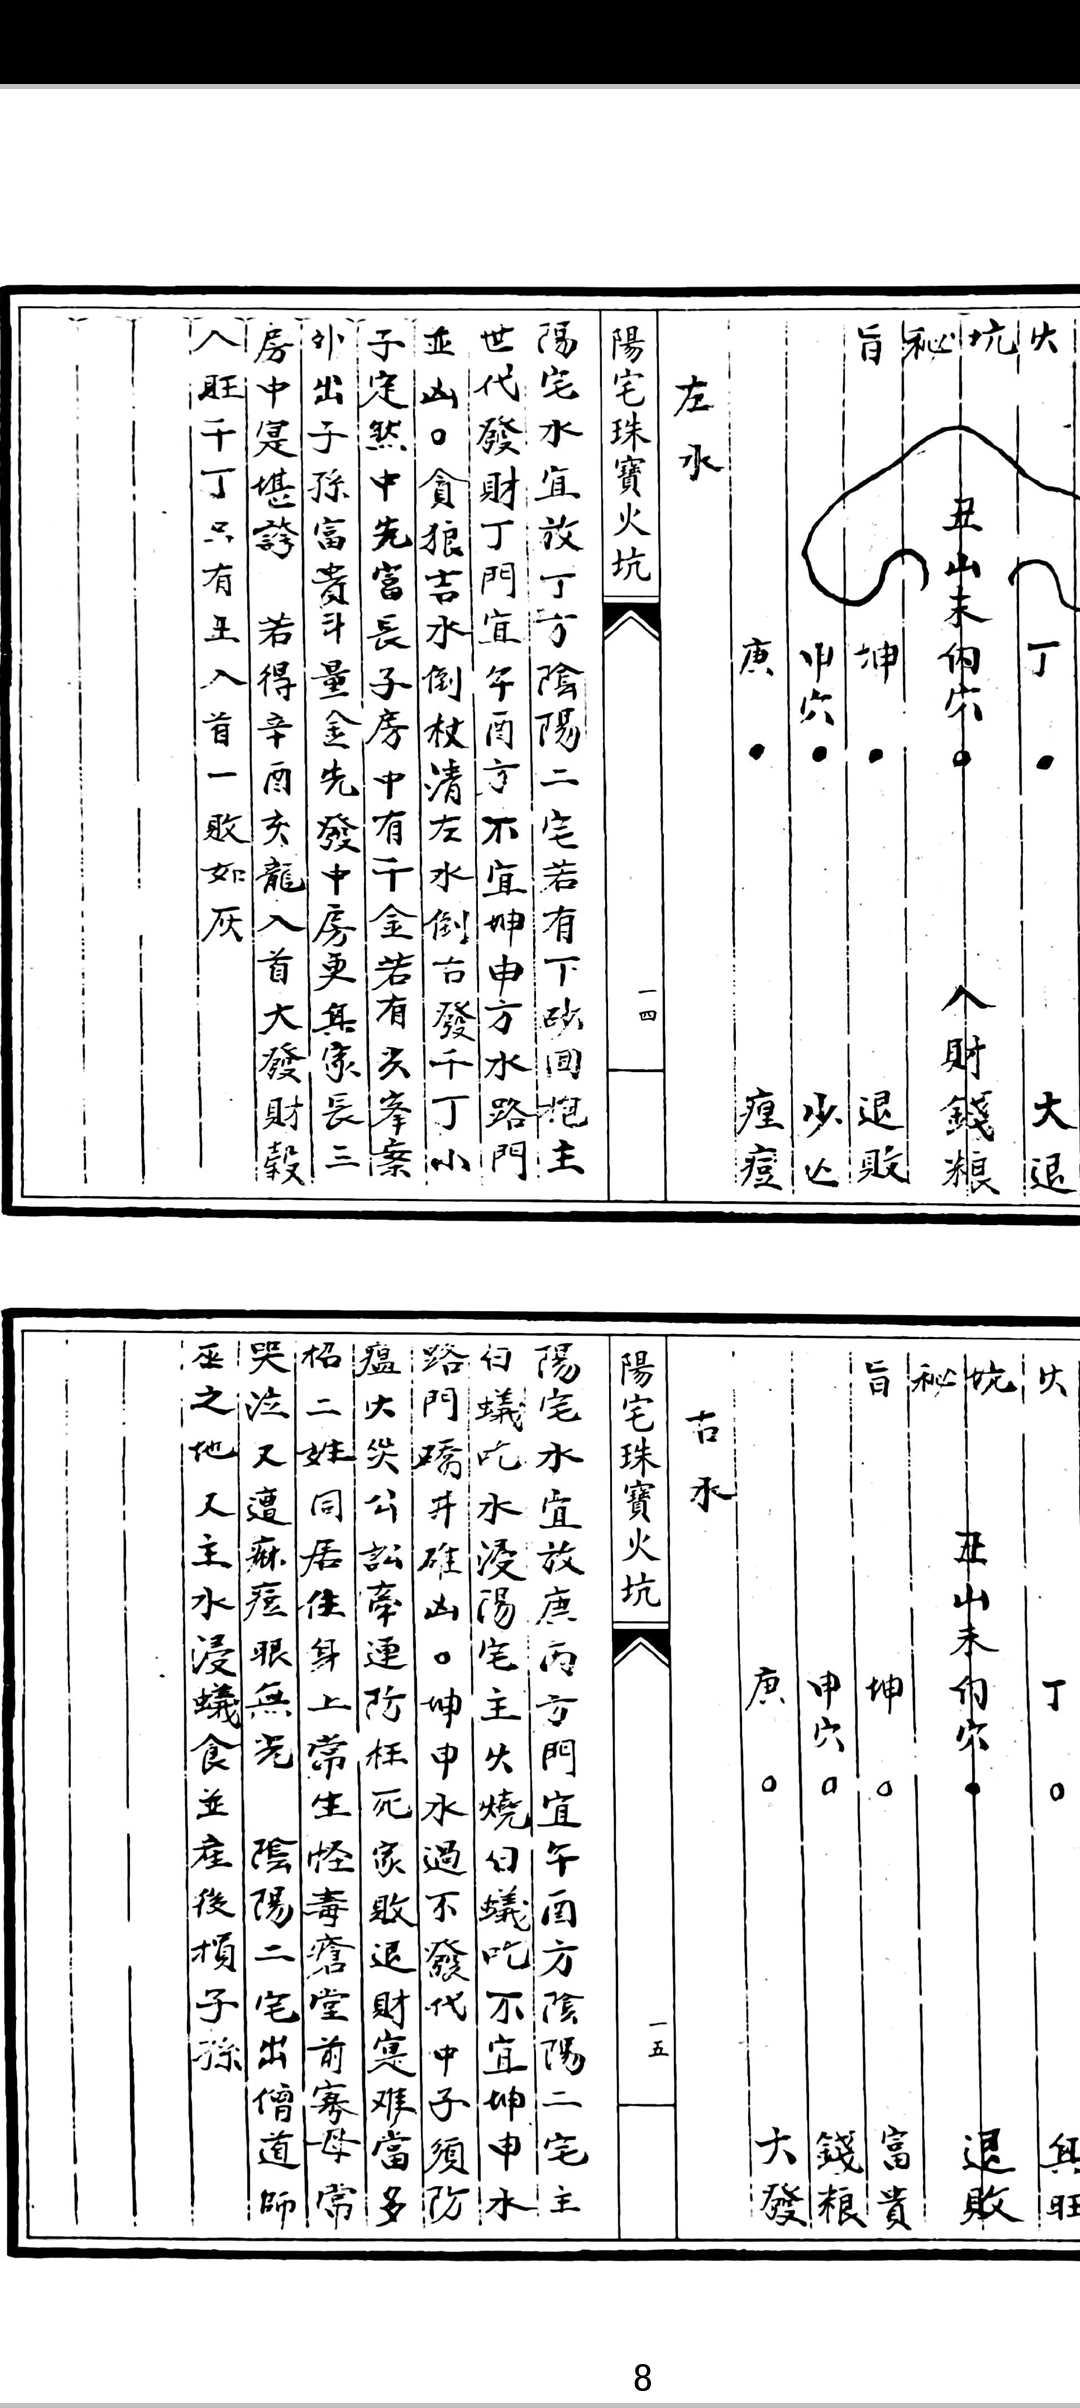 火坑秘旨
丑山未向穴
丁
坤
申穴
庚
大退
人財錢粮
退敗
少亡
瘟痘
左水
陽宅珠寶火坑
一四
陽宅水宜放丁方陰陽二宅若有下砂囬抱主
世代發財丁門宜午酉方不宜坤申方水路門
並凶○貪狼吉水倒杖清左水倒右發千丁小
子定然中先富長子房中有千金若有火峯案
外出子孫富貴斗量金先發中房更興家長三
房中寔堪誇 若得辛酉亥龍入首大發財穀
人旺千丁只有丑入首一敗如灰
火坑秘旨
丑山未向穴
丁
坤
申穴
庚
興旺
退敗
富貴
錢粮
大發
右水
陽宅珠寶火坑
一五
陽宅水宜放庚丙方門宜午酉方陰陽二宅主
白蟻吃水浸陽宅主火燒白蟻吃不宜坤申水
路門碼井碓凶○坤申水過不發代中子須防
瘟火災公訟牽連防枉死家敗退財寔难當多
招二姓同居住身上常生怪毒瘡堂前寡母常
哭泣又遭麻痘眼無光 陰陽二宅出僧道師
巫之地又主水浸蟻食並産後損子孫
8